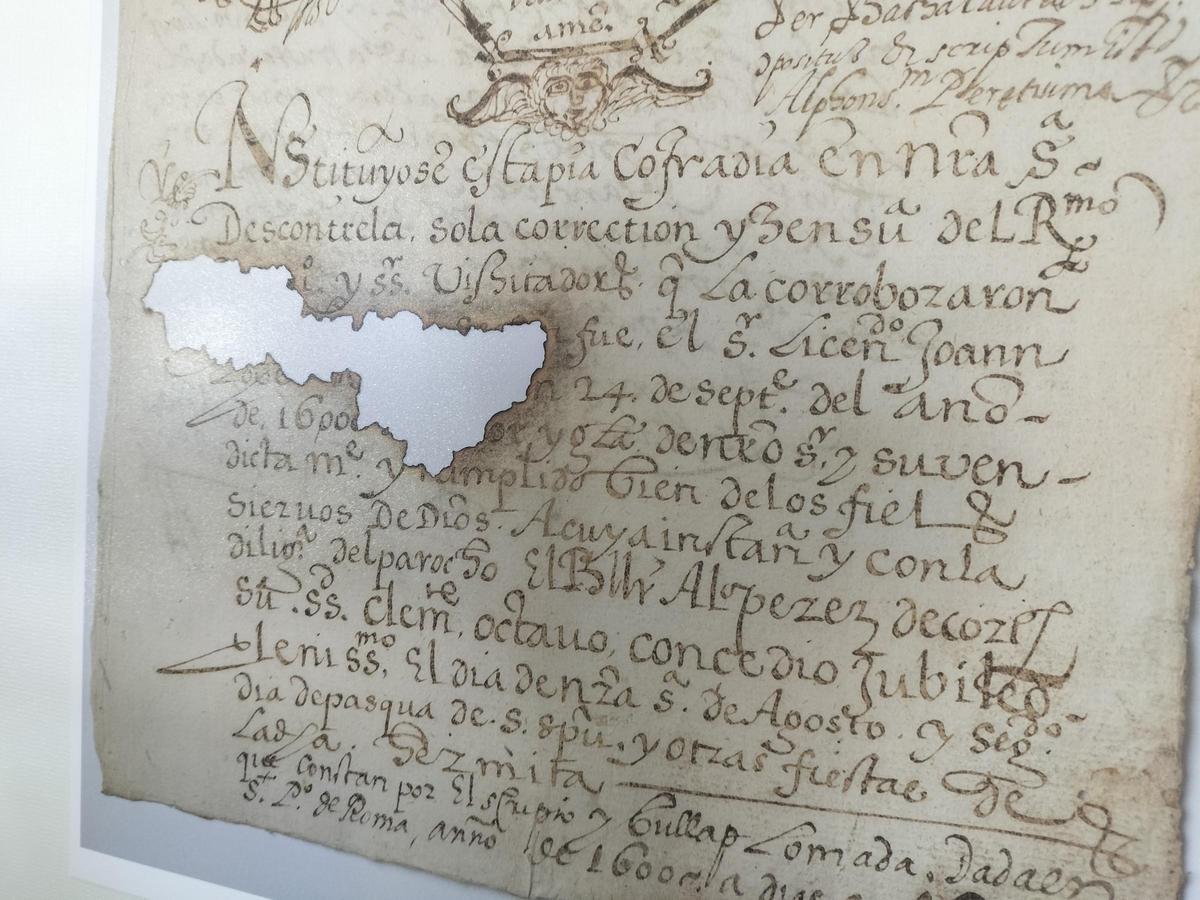 amē.
Per
opositus & scriptum
Alphonsm Peretium
NStituyose Esta pia Cofradia En Nra Sa
Descontrela. sola correction y Zensua del Rmo
y ssres. Vissitadores q̄ La corroborarō
fue, El Sr. Licendo Joann
24. de septe. del año
de, 1600 or, y gla de nro Sr. y su ven
dicta me. y amplido bien de los fiel es
siervos De Dios. A cuya instana y con la
diliga del parocho El Bllr Alo perez de cozes
su . ssd. Clemte. octavo, concedio Jubileo
pleniss.mo El dia de nra Sa. de Agosto. y segdo
dia de pasqua de. S. spū. y otras fiestas De
La dha. Hermita
que constan por El y Bulla plomada. Dada en
S.t Po. de Roma, anno de 1600. a dias